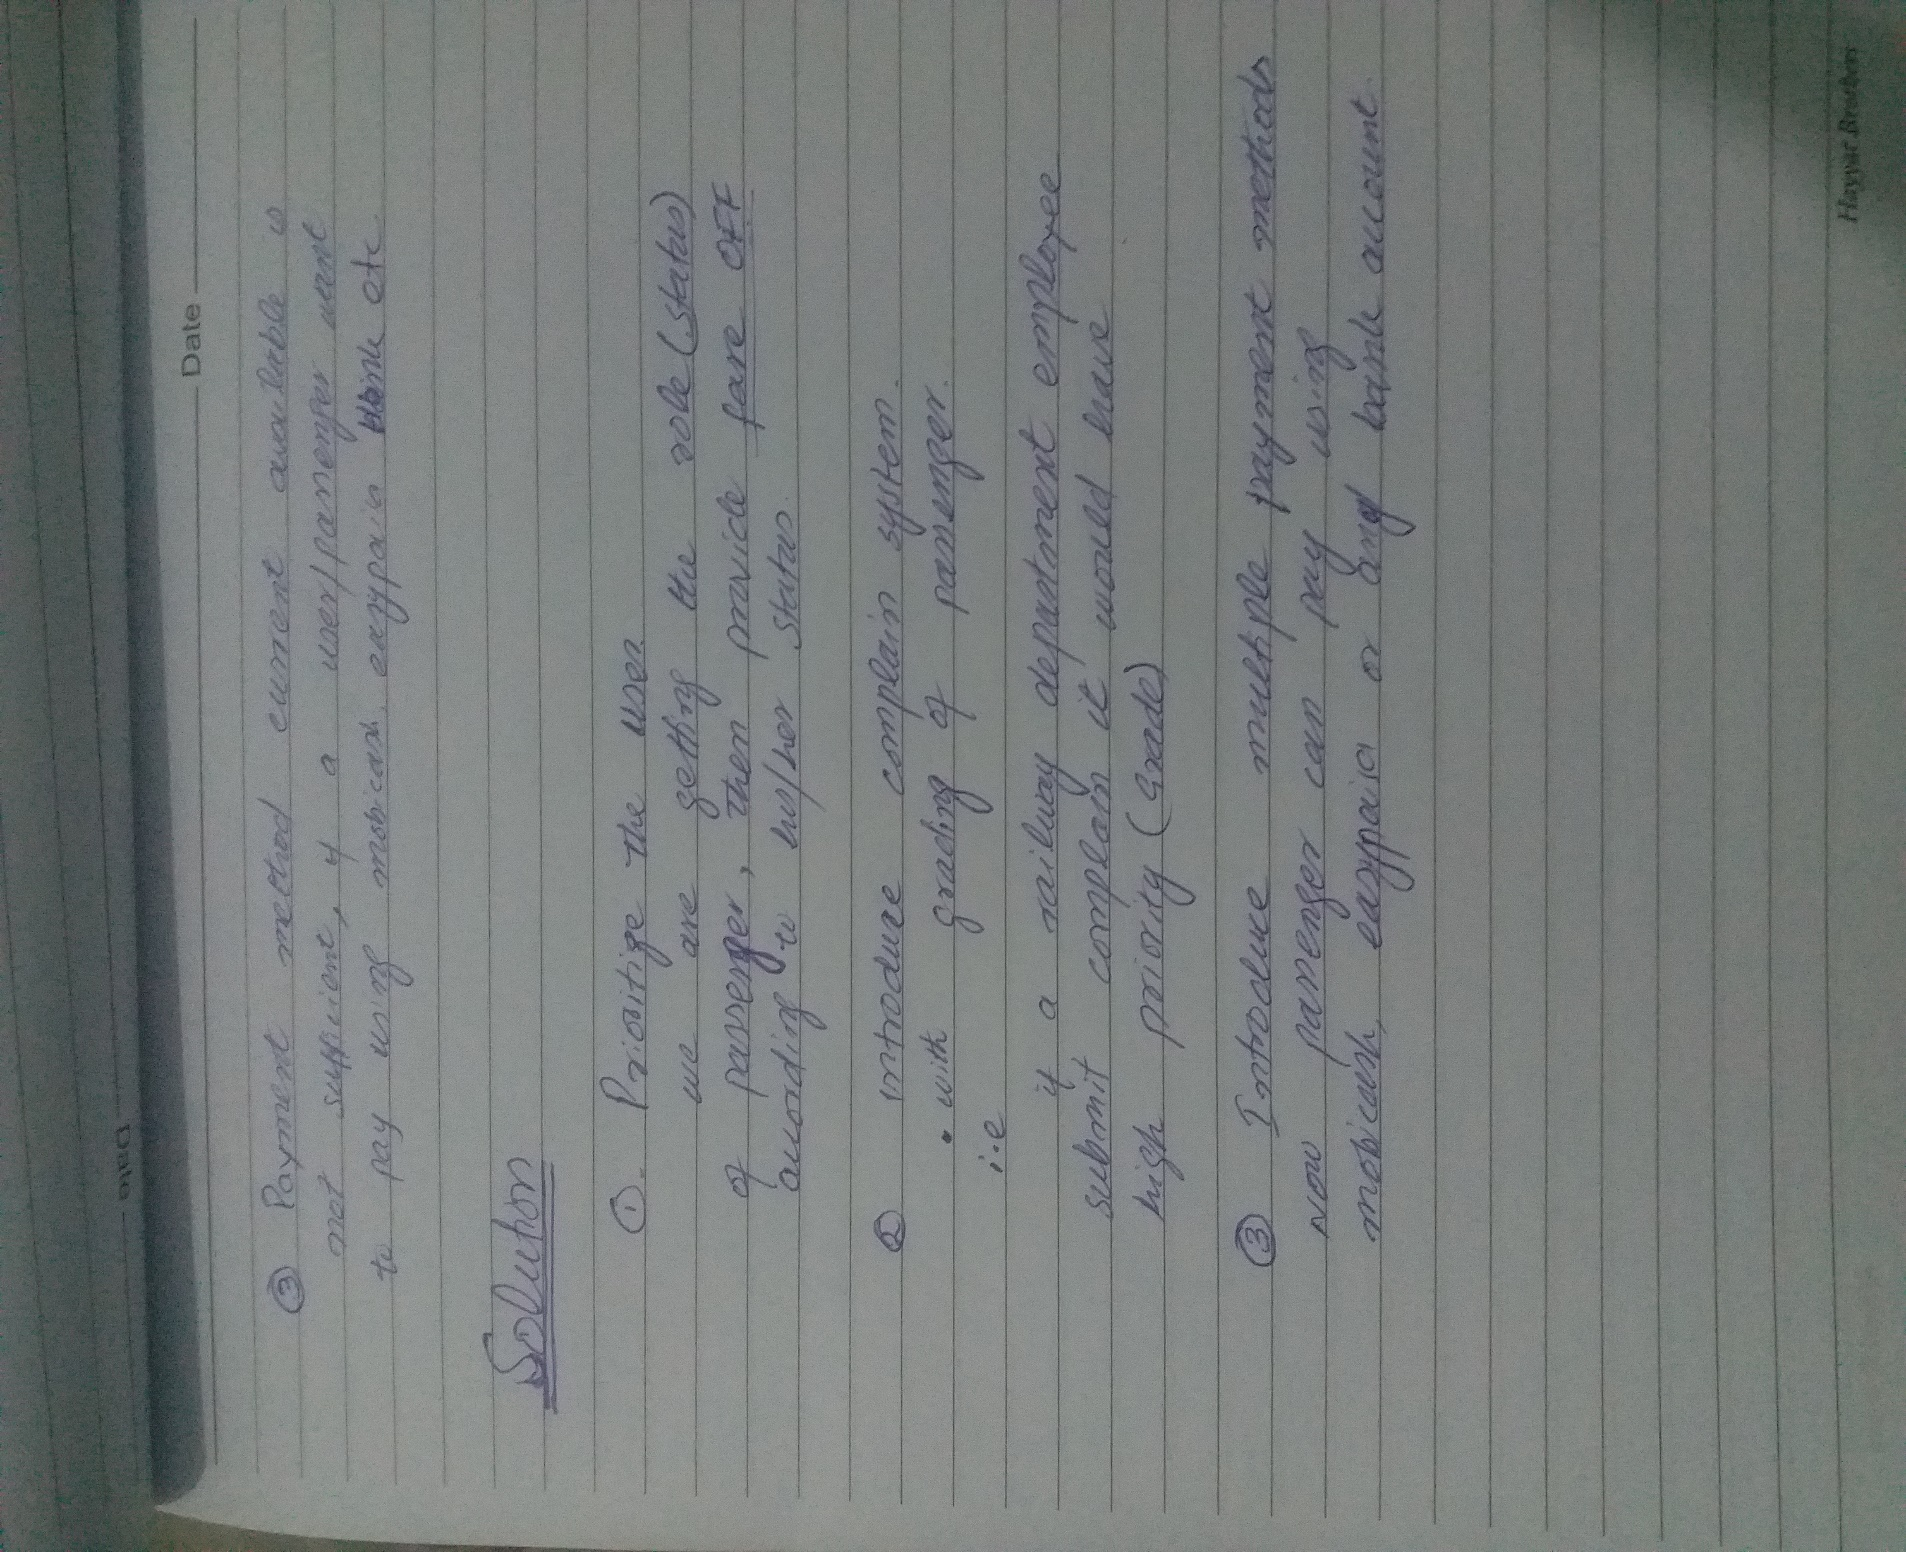 Date
Date
③ Payment method current available is
not suffient, if a user/passenger want
to pay using mobicash, easypaia bank etc
Solution
①. Prioritize the user
we are getting the role (status)
of passenger, then provide fare OFF
according to his/her status.
② introduce complain system.
• with grading of passenger.
i.e
if a railway department employee
submit complain it would have
high priority (Grade)
③ Introduce multiple payment methods
Now passenger can pay using
mobicash, easypaisa or any bank account.
Hayyat Brothers